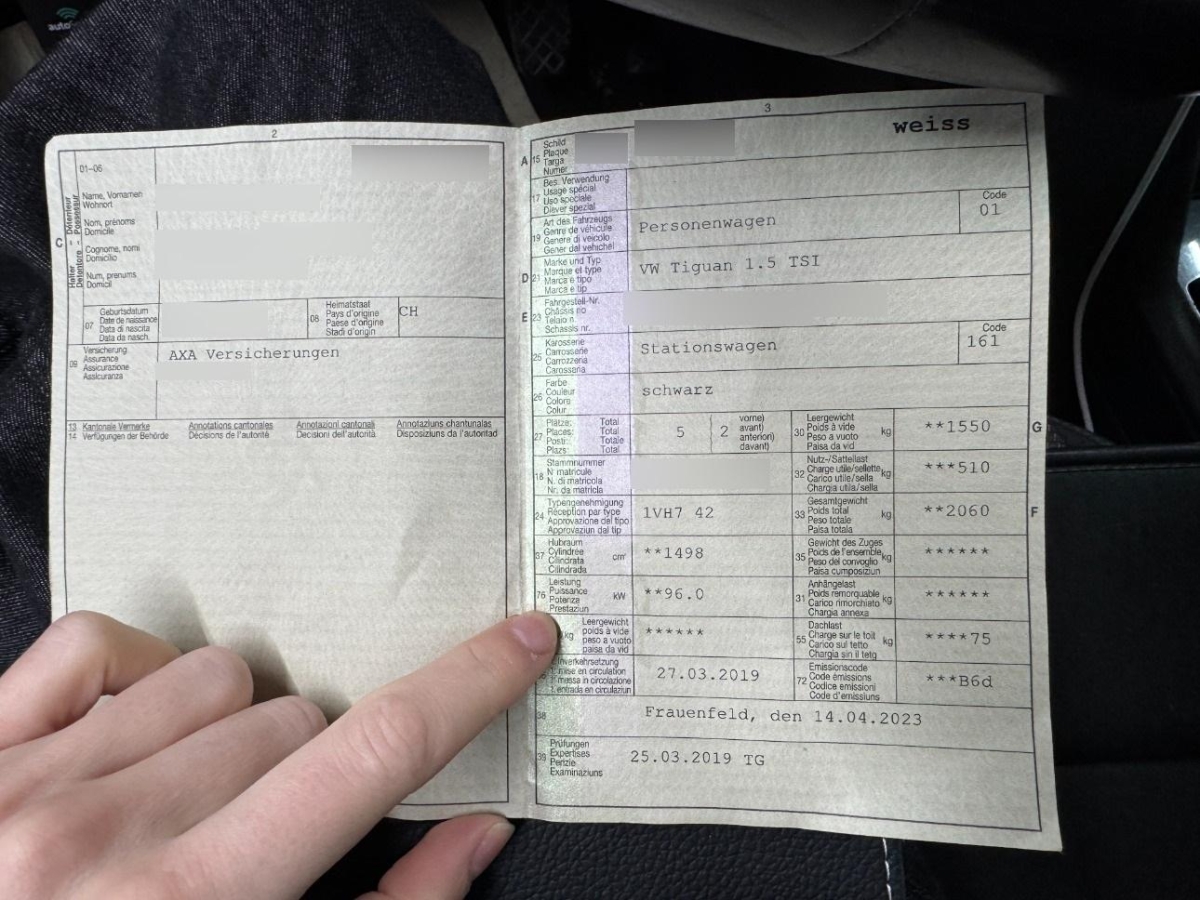 auto
2
01–06
Halter
Détenteur
Detentore
Possessur
C
Name, Vornamen
Wohnort
Nom, prénoms
Domicile
Cognome, nomi
Domicilio
Num, prenums
Domicil
07
Geburtsdatum
Date de naissance
Data di nascita
Data da nasch.
08
Heimatstaat
Pays d'origine
Paese d'origine
Stadi d'origin
CH
09
Versicherung
Assurance
Assicurazione
Assicuranza
AXA Versicherungen
13 Kantonale Vermerke
Annotations cantonales
Annotazioni cantonali
Annotaziuns chantunalas
14 Verfügungen der Behörde
Décisions de l'autorité
Decisioni dell'autorità
Disposiziuns da l'autoritad
3
A 15
Schild
Plaque
Targa
Numer
weiss
17
Bes. Verwendung
Usage spécial
Uso speciale
Diever spezial
19
Art des Fahrzeugs
Genre de véhicule
Genere di veicolo
Gener dal vehichel
Personenwagen
Code
01
D 21
Marke und Typ
Marque et type
Marca e tipo
Marca e tip
VW Tiguan 1.5 TSI
E 23
Fahrgestell-Nr.
Châssis no
Telaio n.
Schassis nr.
25
Karosserie
Carrosserie
Carrozzeria
Carossaria
Stationswagen
Code
161
26
Farbe
Couleur
Colore
Colur
schwarz
27
Plätze: Total
Places: Total
Posti: Totale
Plazs: Total
5
( 2
vorne)
avant)
anteriori)
davant)
30
Leergewicht
Poids à vide
Peso a vuoto
Paisa da vid
kg
**1550
G
18
Stammnummer
N matricule
N. di matricola
Nr. da matricla
32
Nutz-/Sattellast
Charge utile/sellette
Carico utile/sella
Chargia utila/sella
kg
***510
24
Typengenehmigung
Réception par type
Approvazione del tipo
Approvaziun dal tip
1VH7 42
33
Gesamtgewicht
Poids total
Peso totale
Paisa totala
kg
**2060
F
37
Hubraum
Cylindrée
Cilindrata
Cilindrada
cm³
**1498
35
Gewicht des Zuges
Poids de l'ensemble
Peso del convoglio
Paisa cumposiziun
kg
******
76
Leistung
Puissance
Potenza
Prestaziun
kW
**96.0
31
Anhängelast
Poids remorquable
Carico rimorchiato
Chargia annexa
kg
******
kg
Leergewicht
poids à vide
peso a vuoto
paisa da vid
******
55
Dachlast
Charge sur le toit
Carico sul tetto
Chargia sin il tetg
kg
****75
1. Inverkehrsetzung
mise en circulation
messa in circolazione
entrada en circulaziun
27.03.2019
72
Emissionscode
Code émissions
Codice emissioni
Code d'emissiuns
***B6d
38
Frauenfeld, den 14.04.2023
39
Prüfungen
Expertises
Perizie
Examinaziuns
25.03.2019 TG